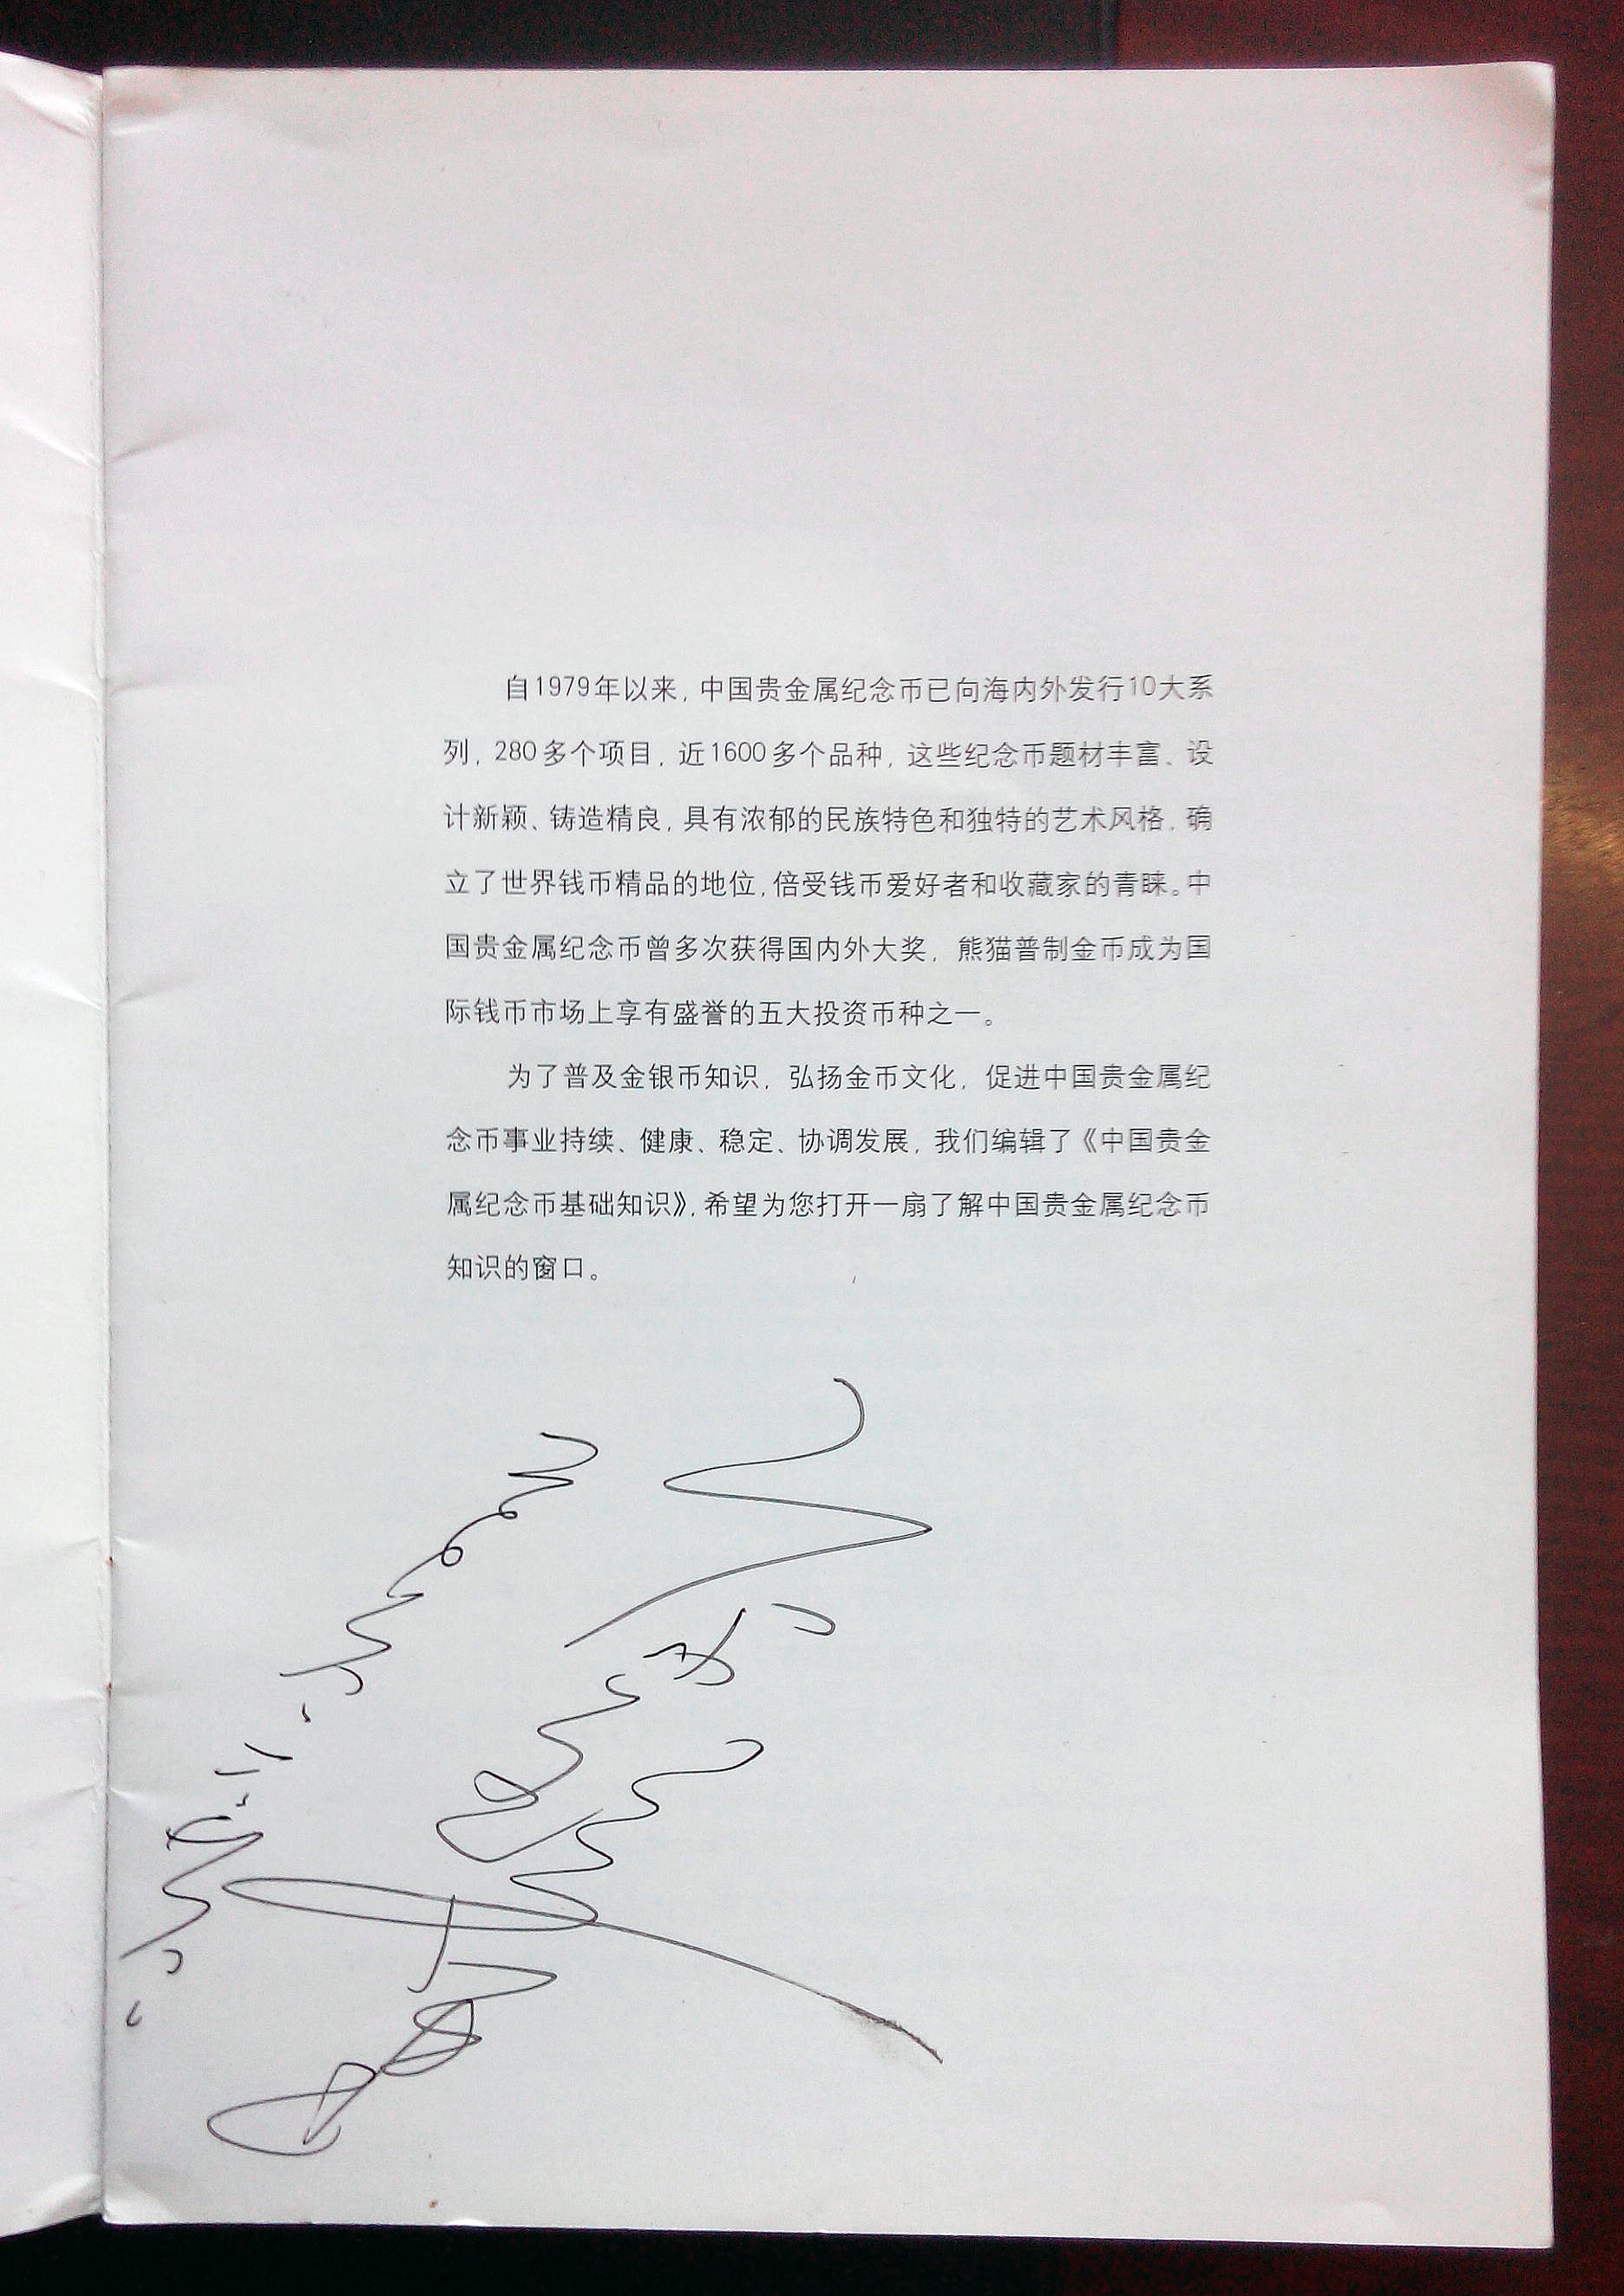 自1979年以来，中国贵金属纪念币已向海内外发行10大系
列，280多个项目，近1600多个品种，这些纪念币题材丰富、设
计新颖、铸造精良，具有浓郁的民族特色和独特的艺术风格，确
立了世界钱币精品的地位，倍受钱币爱好者和收藏家的青睐。中
国贵金属纪念币曾多次获得国内外大奖，熊猫普制金币成为国
际钱币市场上享有盛誉的五大投资币种之一。
为了普及金银币知识，弘扬金币文化，促进中国贵金属纪
念币事业持续、健康、稳定、协调发展，我们编辑了《中国贵金
属纪念币基础知识》，希望为您打开一扇了解中国贵金属纪念币
知识的窗口。